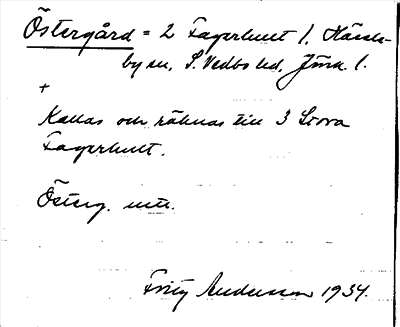 Östergård = 2 Fagerhult l. Hässle-
by sn, S. Vedbo hd, Jönk. l.
+
Kallas och räknas till 3 Stora
Fagerhult.
Österg. utt.
Fritz Andersson 1934.